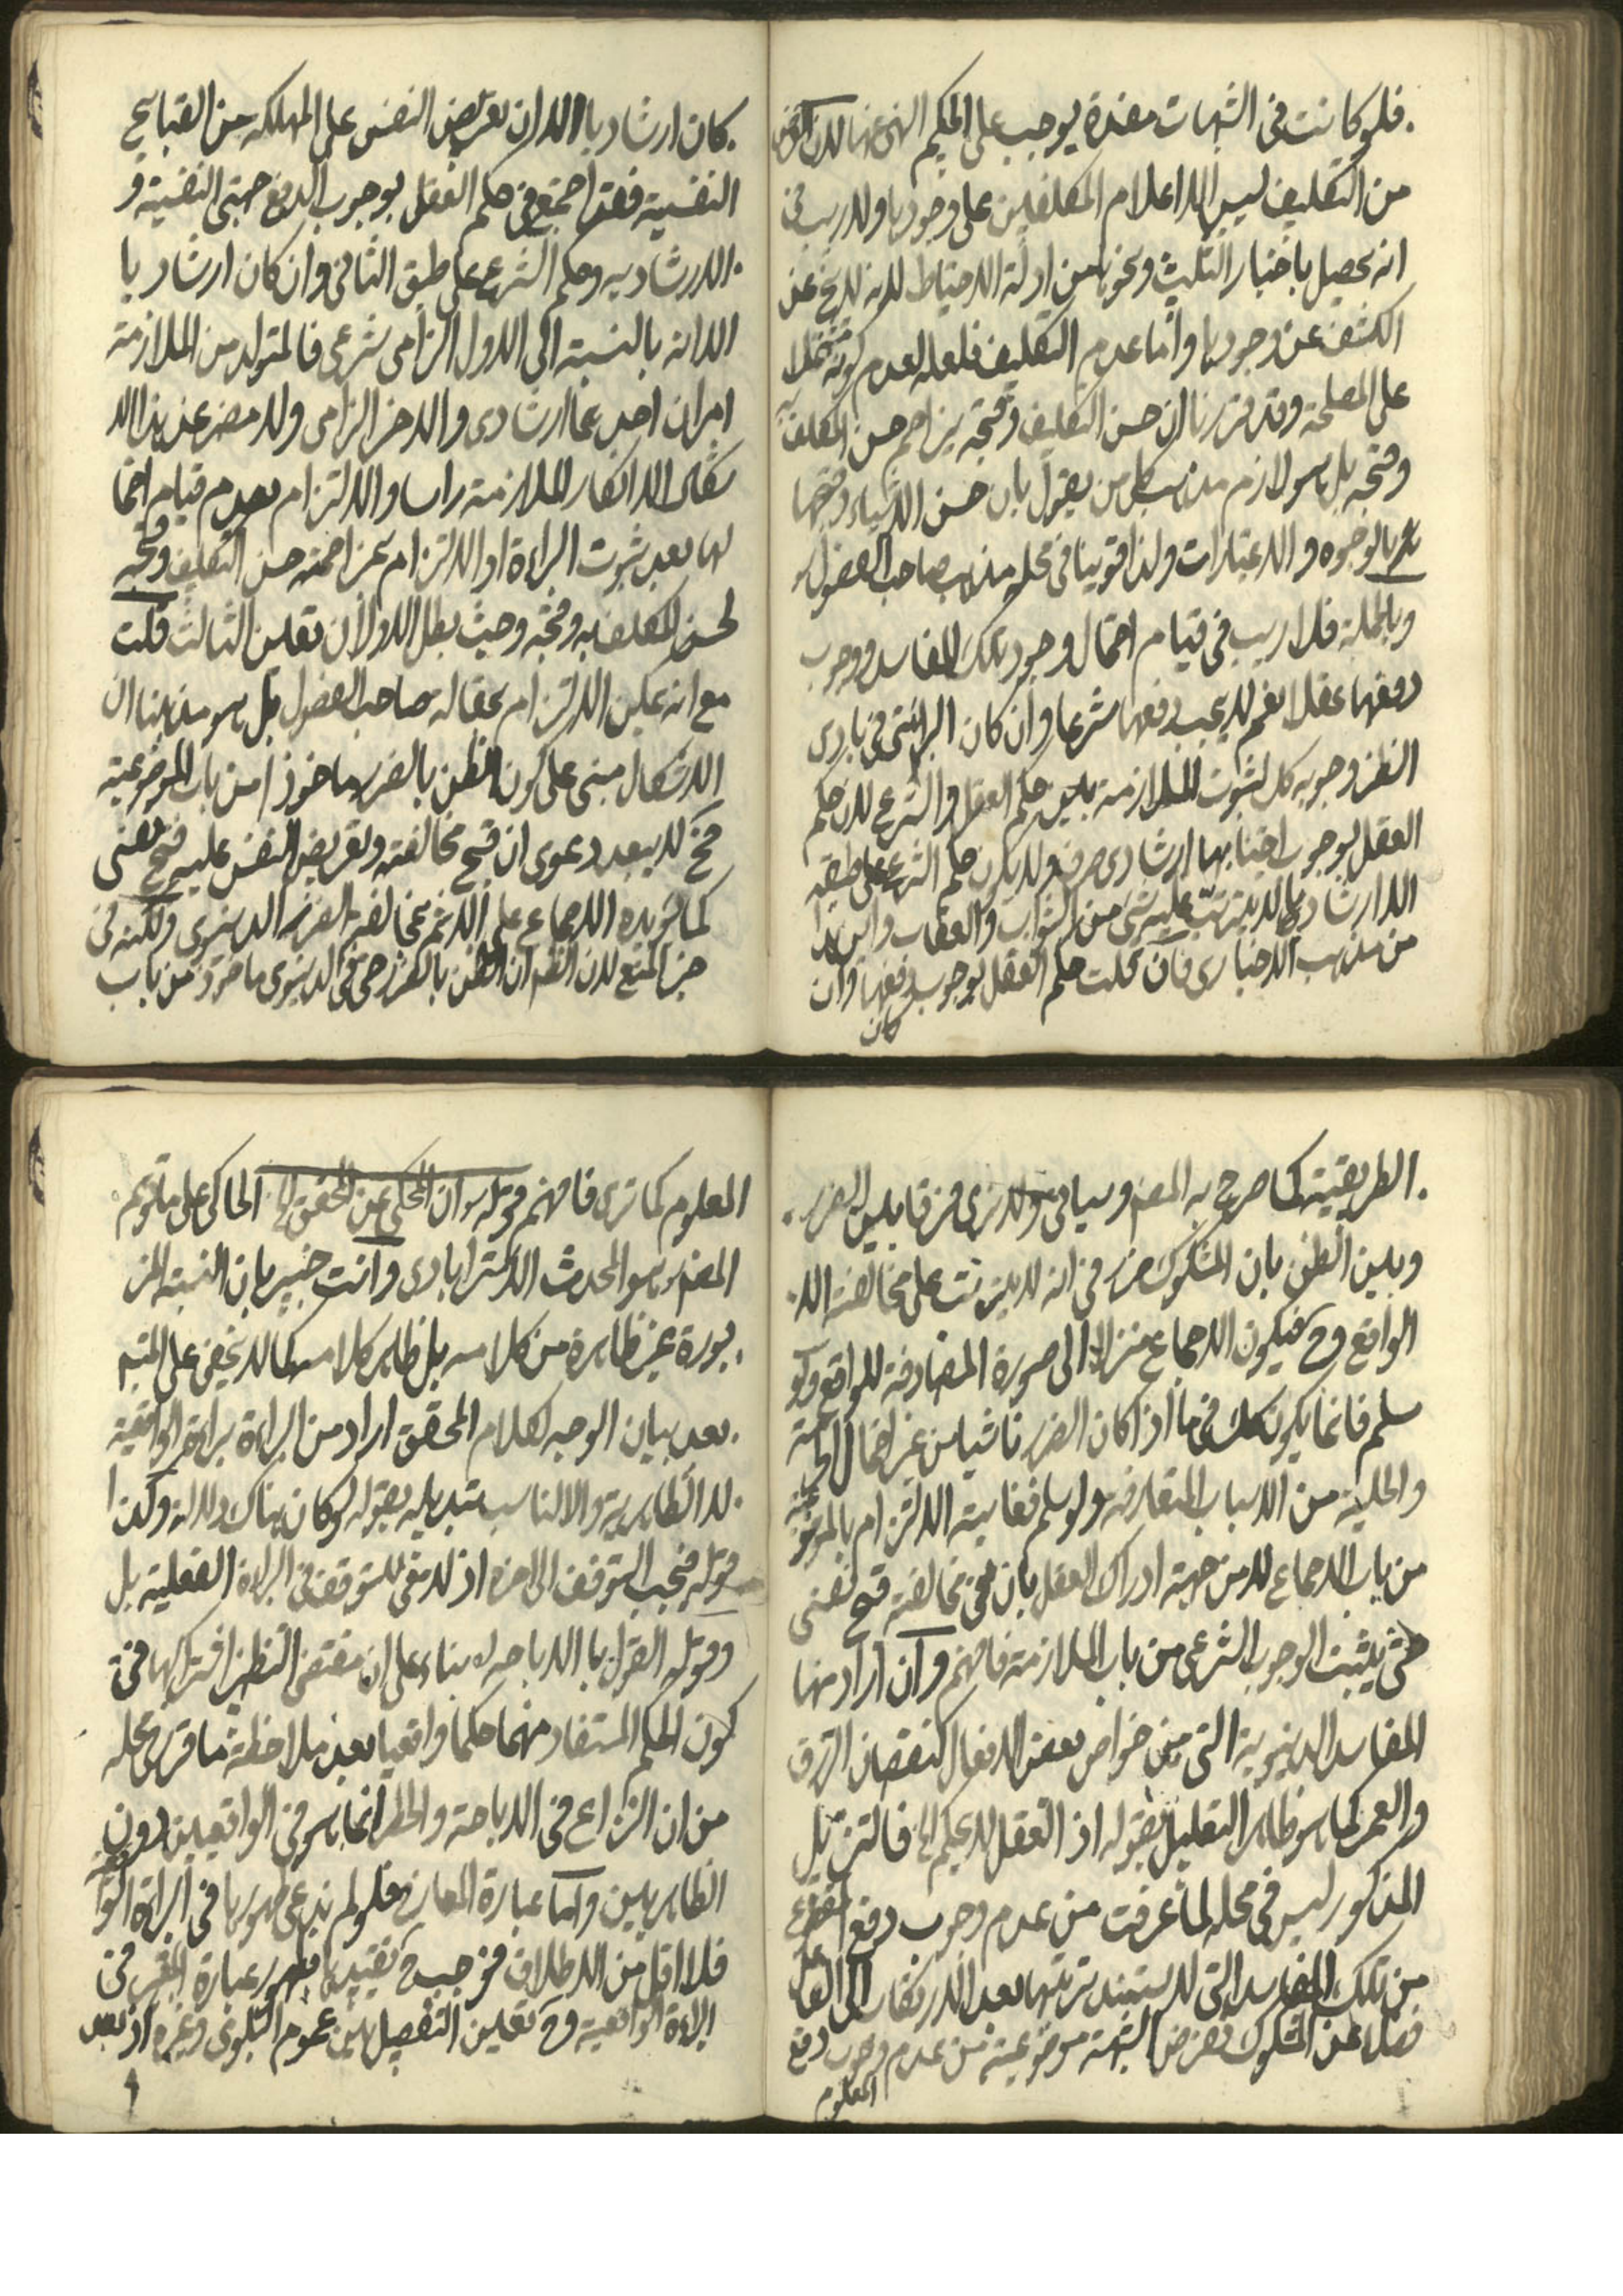 فلو كانت فى الشبهات مفسدة يوجب على الحكيم النهى عنها لان الغرض
من التكليف ليس الا اعلام المكلفين على وجودها ولا ريب فى
انه يحصل باخبار التثليث ونحوها من ادلة الاحتياط لانه لا يخ عن
الكشف عن وجودها واما عدم التكليف فلعله لعدم كونه مشتملا
على المصلحة وقد قررنا ان حسن التكليف وقبحه يزاحم حسن المكلف به
وقبحه بل هو لازم مذهب كل من يقول بان حسن الاشياء وقبحها
بالوجوه والاعتبارات ولذا قوينا فى محله مذهب صاحب الفصول
وبالجملة فلا ريب فى قيام احتمال وجود تلك المفاسد ووجوب
دفعها عقلا نعم لا يجب دفعها شرعا وان كان البرائتى فى بادى
النظر وجوبه كل لثبوت الملازمة بين حكم العقل والشرع لان حكم
العقل بوجوب اجتنابها ارشادى صرف ولا يكون حكم الشرع على طبقه
الا ارشاديا لا يترتب عليه شئ من الثواب والعقاب واين هذا
من مذهب الاخبارى فان قلت حكم العقل بوجوب دفعها وان
كان
كان ارشاديا الا ان تعريض النفس على المهلكه من القبايح
النفسية فقد اجتمع فى حكم العقل بوجوب الدفع جهتى النفسية و
الارشادية وحكم الشرع على طبق الثانى وان كان ارشاديا
الا انه بالنسبة الى الاول الزامى شرعى فالمتولد من الملازمة
امران احدهما ارشادى والاخر الزامى ولا مفر عن هذا الا
شكال الا انكار الملازمة راسا والالتزام بعدم قيام احتما
لها بعد ثبوت البراءة او الالتزام بمزاحمته حسن التكليف وقبحه
لحسن المكلف به وقبحه وحيث بطل الاولان تعين الثالث قلت
مع انه يمكن الالتزام بمقاله صاحب الفصول بل هو مذهبنا ان
الاشكال مبنى على كون الظن بالضرر ماخوذا من باب الموضوعية
فح لا يبعد دعوى ان قبح مخالفته وتعريض النفس عليه قبح نفسى
كما يؤيده الاجماع على الاثم بمخالفة الضرر الدنيوى ولكنه فى
حيز المنع لان الظم ان الظن بالضرر حتى فى الدنيوى ماخوذ من باب
الطريقية كما صرح به المصنف وسياتى ولا نرى فرقا بين الضرر
وبين الظن بان المشكوك ضرر فى انه لا يترتب على مخالفته الا
الواقع وح فيكون الاجماع منزلا الى صورة المصادفة للواقع ولو
سلم فانما يكون كك فى ما اذا كان الضرر ناشيا من غير احتمال الحرمة
والحلية من الاسباب المتعارفه ولو سلم فغايته الالتزام بالموضوعية
من باب الاجماع لا من جهة ادراك العقل بان فى مخالفته قبح نفسى
حتى يثبت الوجوب الشرعى من باب الملازمة فافهم وان اراد منها
المفاسد الدنيوية التى من خواص بعض الافعال كنقصان الرزق
والعمر كما هو ظاهر التعليل بقوله اذ العقل لا يحكم الخ فالتنزيل
المذكور ليس فى محله لما عرفت من عدم وجوب دفع المقطوع
من تلك المفاسد التى لا يستند ترتبها بعد الارتكاب الى الفاعل
فضلا عن المشكوك بفرض الشبهة موضوعية من عدم وجوب دفع
المعلوم
المعلوم كما ترى فافهم قوله ان المحكى عن المحقق الخ الحاكى على ما توهم
المصنف هو المحدث الاسترابادى وانت خبير بان النسبة المز
بورة غير ظاهرة من كلامه بل ظاهر كلامه كما لا يخفى على المتتبع
بعد بيان الوجه لكلام المحقق اراد من البراءة براءة الواقعية
لا الظاهرية والا لناسب تبديله بقوله لو كان هناك دلالة وكذا
قوله فيجب التوقف الى اخره اذ لا معنى للتوقف فى البراءة الفعلية بل
وقوله القول بالاباحه بناء على ان مقتضى النظر اشتراكها فى
كون الحكم المستفاد منهما حكما واقعيا بعد ملاحظة ما قرر فى محله
من ان النزاع فى الاباحة والحظر انما هو فى الواقعيين دون
الظاهريين واما عبارة المعارج فلو لم ندع ظهورها فى البراءة الواقعية
فلا اقل من الاطلاق فيوجب ح تقييدها ظهور عبارة المعتبر فى
البراءة الواقعية وح تعين التفصيل بين عموم البلوى وغيره اذ بعد